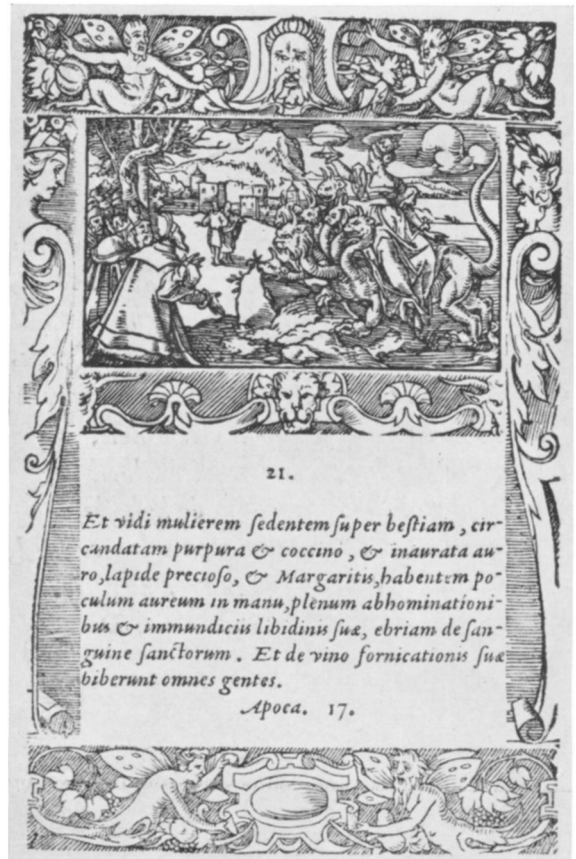 21.
Et vidi mulierem sedentem super bestiam, cir-
candatam purpura & coccino, & inaurata au-
ro, lapide precioso, & Margaritis, habentem po-
culum aureum in manu, plenum abhominationi-
bus & immundiciis libidinis suæ, ebriam de san-
guine sanctorum. Et de vino fornicationis suæ
biberunt omnes gentes.
Apoca. 17.